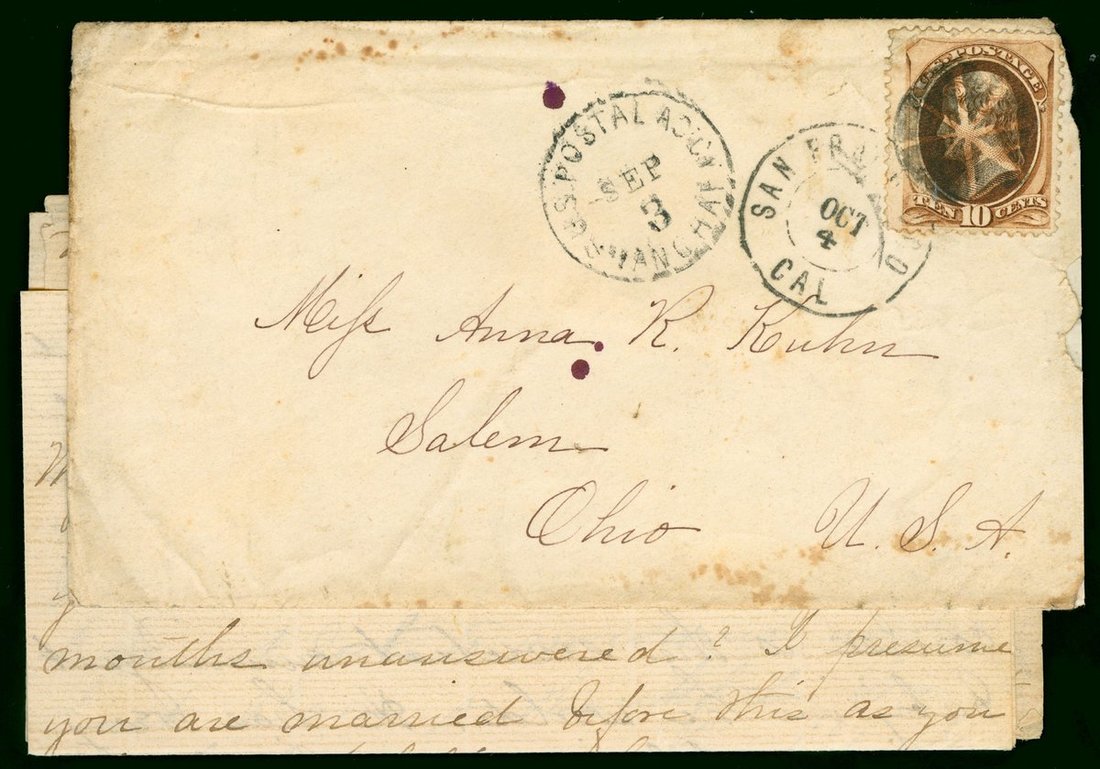 U.S. POSTAL AGCY
SHANGHAI
SEP
3
SAN FRA
OCT
4
CAL
U.S. POSTAGE
TEN 10 CENTS
Miſs Anna R. Kuhn
Salem
Ohio U. S. A.
months unanswered? I presume
you are married before this as you